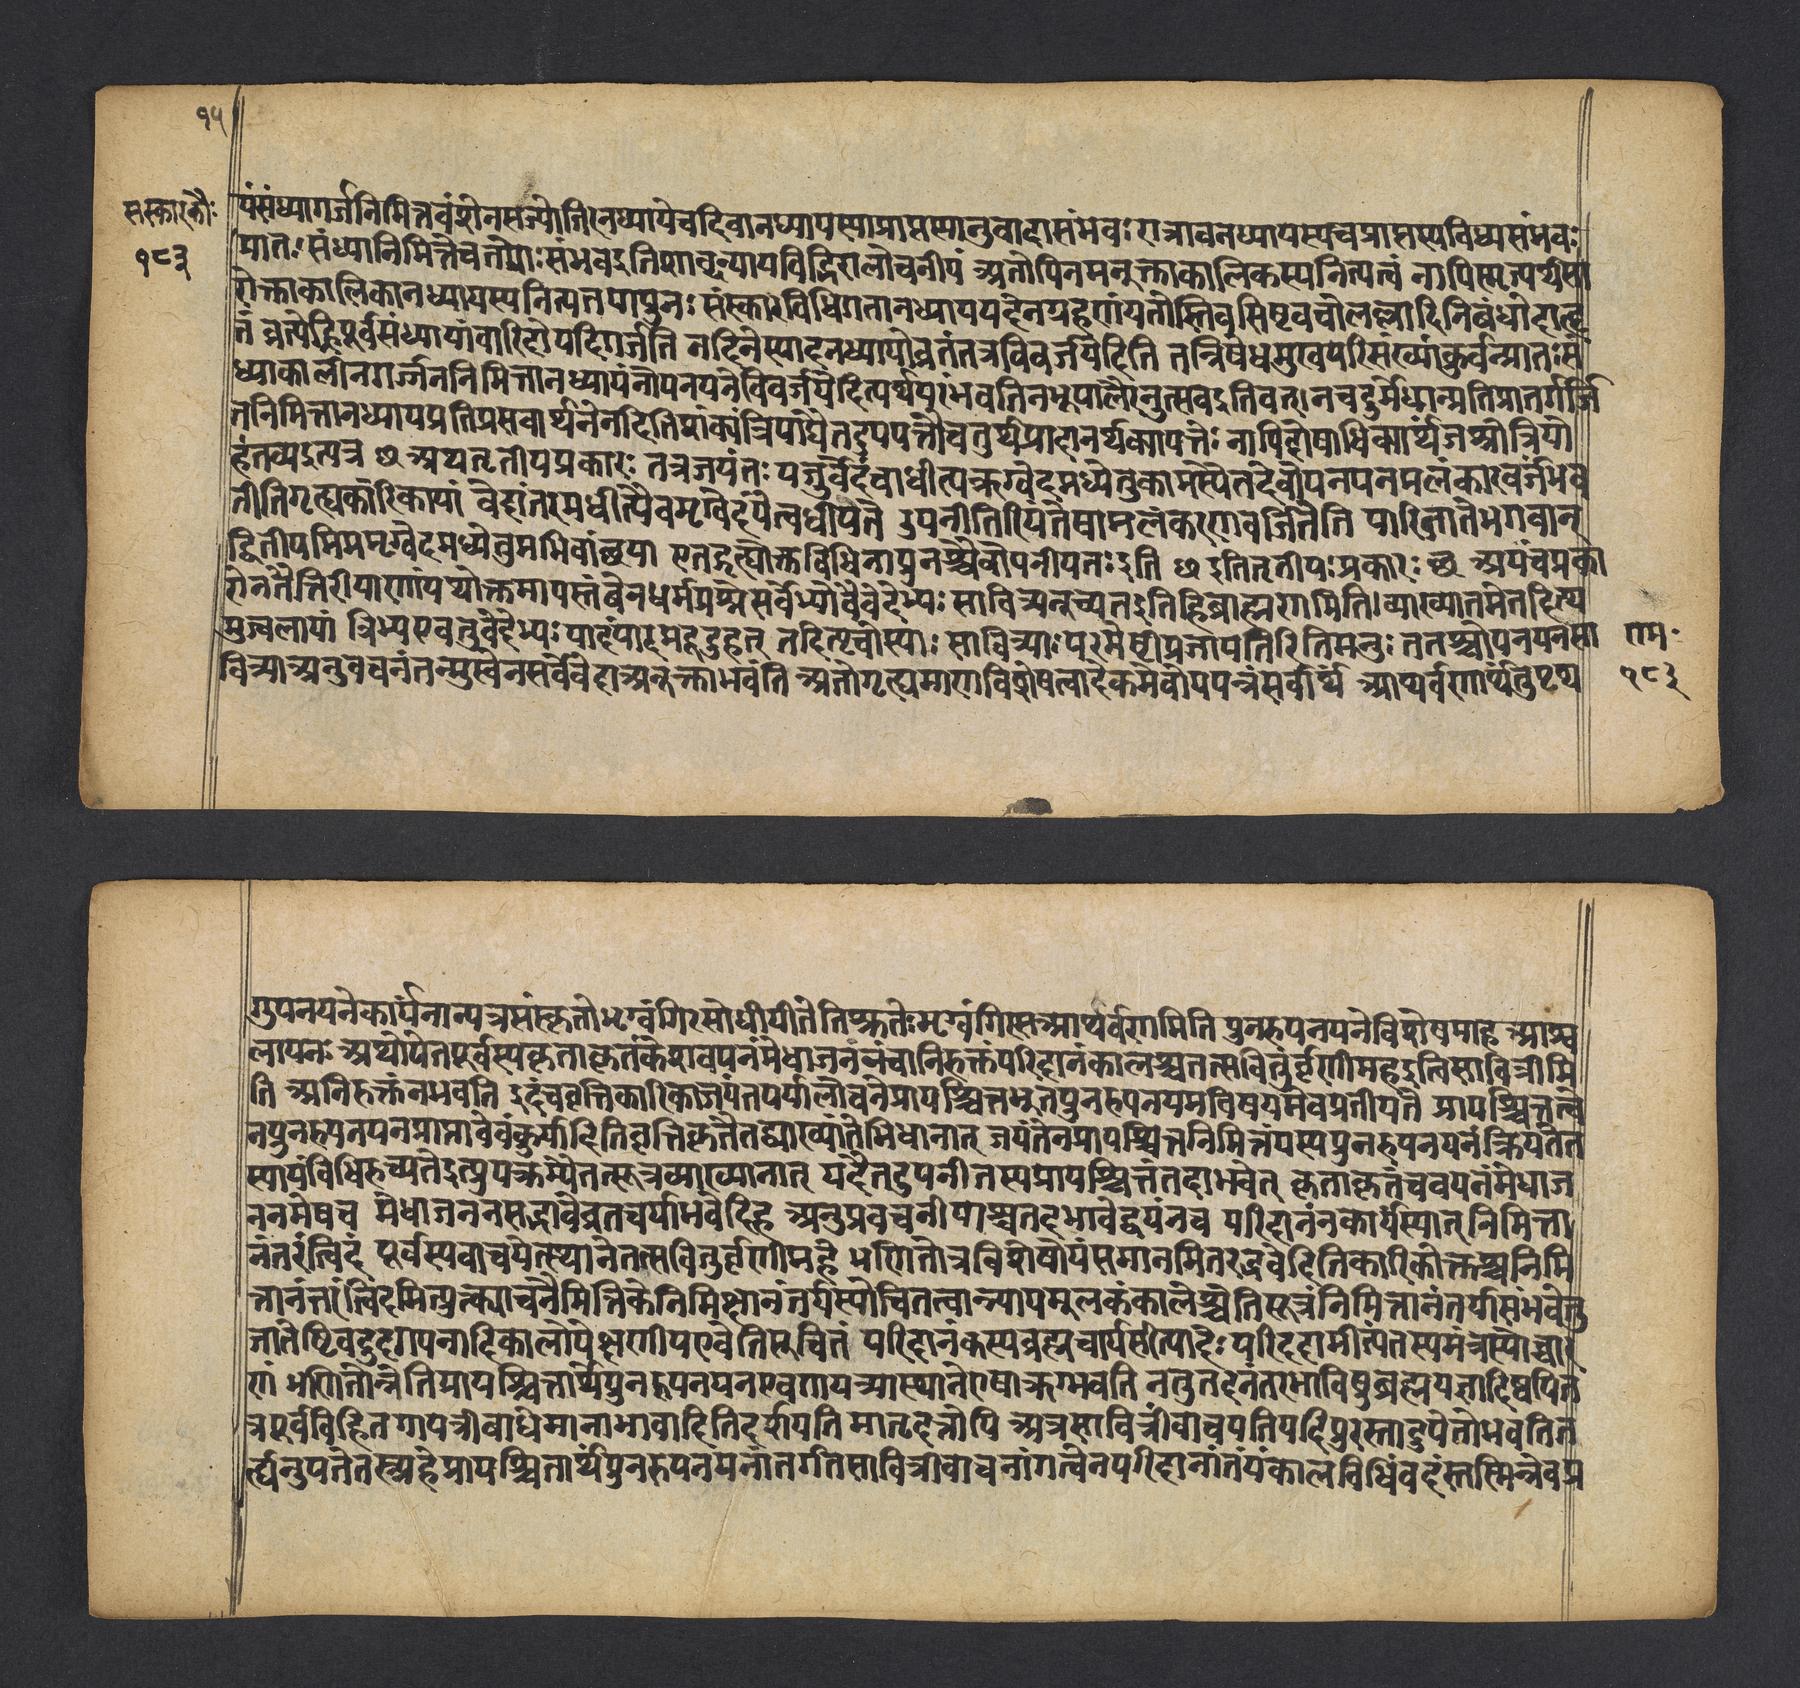 १५
संस्कारकौः
१८३
यंसंध्यागर्जनिमित्तवंशेनसज्योतिरनध्यायेचदिवानध्यायस्याप्राप्तस्यानुवादासंभवः रात्रावनध्यायस्यचप्राप्तस्यविध्यसंभवः
प्रातः संध्यानिमित्तेचतयोः संभवइतिशाब्दन्यायविद्भिरालोचनीयं अतोपिनमनूक्ताकालिकस्यनित्यत्वं नापिस्मृत्यर्थसा
रोक्ताकालिकानध्यायस्यनित्यत पापुनः संस्कारविधिगतानध्यायपदेनग्रहणंयतोस्तिवसिष्ठवचोलल्लादिनिबंधोदाहृ
तं व्रत्येह्निपूर्वसंध्यायांवारिदोयदिगर्जति तद्दिनेस्यादनध्यायोव्रतंतत्रविवर्जयेदिति तन्निषेधमुखपरिसंख्यांकुर्वन्प्रातःसं
ध्याकालीनगर्ज्जननिमित्तानध्यायंनोपनयनेविवर्जयेदित्यर्थपरंभवतिनभूपालैरनुत्सवइतिवत्। नचदुर्मेधान्प्रतिप्रातर्गर्ज्जि
तनिमित्तानध्यायप्रतिप्रसवार्थनेनहितिशंक्यंत्रिपाद्येतदुपपत्तौचतुर्थप्रादानर्थक्यापत्तेः नापिदोषाधिक्यार्थंजश्रोत्रियो
हंतव्यइत्यत्र छ अथतृतीयप्रकारः तत्रजयंतः यजुर्वेदंवाधीत्यऋग्वेदमध्येतुकामस्यैतदेवोपनयनमलंकारवर्जंभव
तीतिगृह्यकारिकायां वेदांतरमधीत्यैवमृग्वेदंयेत्वधीयते उपनीतिरियंतेषामलंकरणवर्जितेति पारिजातेभगवान्
द्वितीयमिममृग्वेदमध्येतुमभिवांछया एतद्गृह्योक्तविधिनापुनश्चैवोपनीयतः इति छ इतितृतीयः प्रकारः छ अयंचप्रका
रोनतैत्तिरीयाणांयथोक्तमापस्तंबेनधर्मप्रश्नेसर्वेभ्योवैवेदेभ्यः सावित्र्यनूच्यतइतिहिब्राह्मणमिति। व्याख्यातमेतदित्य
मुज्वलायां त्रिभ्यएवतुवेदेभ्यः पादंपादमदूदुहत् तदित्यृचोस्याः सावित्र्याः परमेष्ठीप्रजापतिरितिमनुः ततश्चोपनयनेसा
वित्र्याअनुवचनंतन्मुखेनसर्वेवेदाअनूक्ताभवंति अतोगृह्यमाणविशेषत्वादेकमेवोपपन्नंसर्वार्थं आथर्वणार्थंतुपृथ
राम·
१८३
गुपनयनेकार्यनान्यत्रसंस्कृतोभृग्वंगिरसोधीयीतेतिश्रुतेः भृग्वंगिरसआथर्वणमिति पुनरुपनयनेविशेषमाह आश्व
लायनः अथोपेतपूर्वस्यकृताकृतंकेशवपनंमेधाजननंचानिरुक्तंपरिदानंकालश्चतत्सवितुर्वृणीमहइतिसावित्रीमि
ति अनिरुक्तंनभवति इदंचवृत्तिकारिकाजयंतपर्यालोचनेप्रायश्चित्तभूतपुनरुपनयमविषयमेवप्रतीयते प्रायश्चित्तत्वे
नपुनरुपनयनप्राप्तावेवंकुर्यादितिवृत्तिकृतैतद्व्याख्यातेभिधानात् जयंतेनप्रायश्चित्तनिमित्तंयस्यपुनरुपनयनंक्रियतेत
स्यायंविधिरुच्यतेइत्युपक्रम्यैतत्सूत्रव्याख्यानात् यदैतदुपनीतस्यप्रायश्चित्तंतदाभवेत् कृताकृतंचवपनंमेधाज
ननमेवच मेधाजननसद्भावेव्रतचर्याभवेदिह अनुप्रवचनीयाश्चतदभावेद्वयंनच परिदानंनकार्यंस्यात् निमित्ता
नंतरंत्विदं पूर्वस्यवाचयेत्स्थानेतत्सवितुर्वृणीमहे भणितोत्रविशेषोयंसमानमितरद्भवेदितिकारिकोक्तश्चनिमि
त्तानंतरंत्विदमित्युक्त्याचनैमित्तिकेनिमित्तानंतर्यस्योचितत्वान्न्यायमूलकंकालेश्चेतिसूत्रंनिमित्तानंतर्यासंभवेतु
जातेष्टिवदुदगयनादिकालोपेक्षणीयएवेतिसूचितं परिदानंकस्यब्रह्मचार्यसीत्यादेः परिददामीत्यंतस्यमंत्रस्योच्चार
णं भणितोन्नेतिप्रायश्चित्तार्थपुनरुपनयनएवगायत्र्यास्थानेएषाऋग्भवति नतुतदनंतरभाविषुब्रह्मयज्ञादिष्वपित
त्रपूर्वविहितगायत्रीबाधेमानाभावादितिदर्शयति मातृदत्तोपि अत्रसावित्रींवाचयतियदिपुरस्तादुपेतोभवतित
र्ह्यनुपेतेतत्स्प्रहेप्रायश्चितार्थपुनरुपनयनांतर्गतसावित्रीवाचनांगत्वेनपरीदानांतंयंकालविधिंवदंस्तस्मिन्नेवप्र